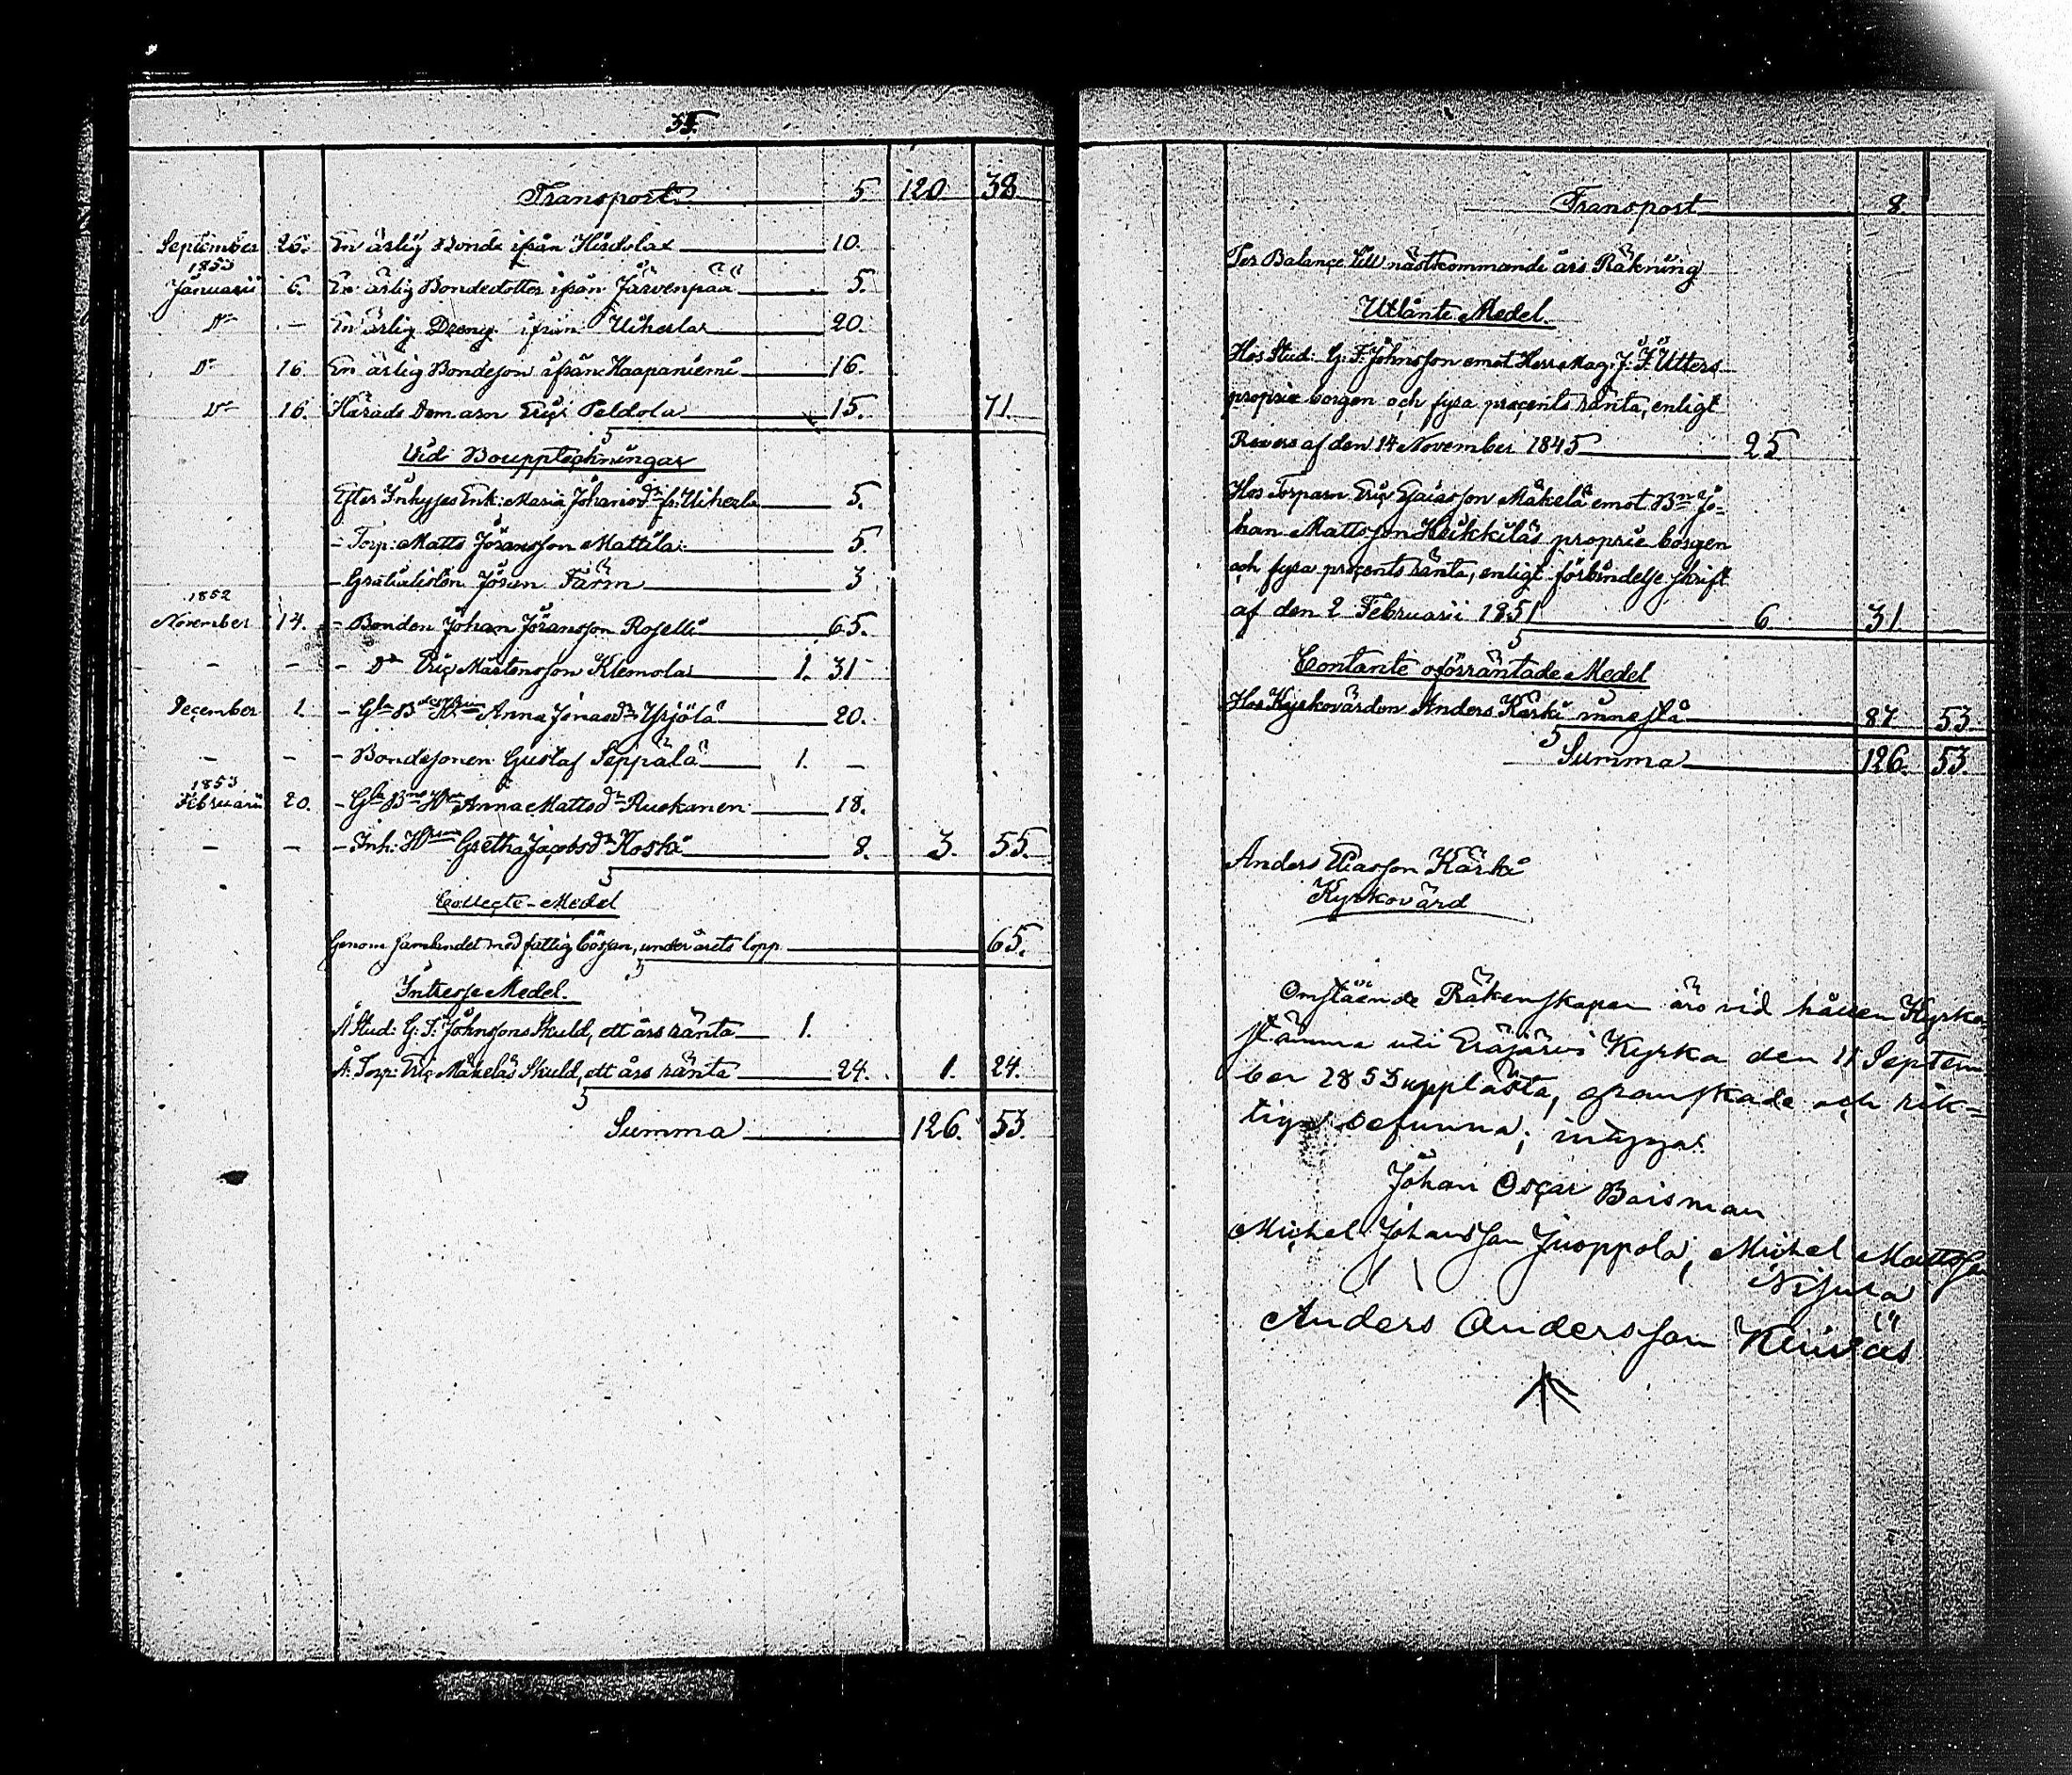 35.
Transport 5. 120 38.
September 26. En ärlig Bonde ifrån Hirdola 10.
1853
Januarii 6. En ärlig Bondedotter ifrån Järvenpää 5.
Do — En ärlig Dreng ifrån Uiherla 20.
Do 16. En ärlig Bondeson ifrån Haapaniemi 16.
Do 16. Härads Domarn Eric Peldola 15. 71.
Vid Bouppteckningar
Efter Inhyses Enk: Maria Johansdr fr. Uiherla 5.
— Torp: Matts Jöransson Mattila 5.
— Gratialisten Jöran Färm 3
1852
November 14. — Bonden Johan Jöransson Roselli 65.
— — — Do Eric Mårtensson Klemola 1. 31
December 1. — Gla Anna Jonasdr Yrjölä 20.
— — — Bondesonen Gustaf Seppälä 1. —
1853
Februarii 20. — Gla Anna Mattsdr Ruokanen 18.
— — — Inh: Gretha Jacobsdr Koski 8. 3. 55.
Collecte-Medel
Genom samlandet med fattig bössan, under årets lopp 65.
Intresse Medel.
Å Stud: G: F: Johnssons Skuld, ett års ränta 1.
Å Torp: Eric Mäkeläs Skuld, ett års ränta 24. 1. 24.
Summa 126. 53.
Transport 8.
Per Balance till nästkommande års Räkning
Utlånte Medel.
Hos Stud: G: F: Johnsson emot Herr Mag: J: F: Utters
proprie borgen och fyra procents ränta, enligt
Revers af den 14 November 1845 25
Hos Torparn Eric Esaiasson Mäkelä emot Bn Jo-
han Mattsson Heikkiläs proprie borgen
och fyra procents ränta, enligt förbindelse skrift
af den 2 Februarii 1851 6 31 —
Contante oförräntade Medel
Hos Kyrkovärden Anders Kärki innestå 87 53
Summa 126. 53.
Anders Eliasson Kärki
Kyrkovärd
Omstående Räkenskaper äro vid hållen Kyrko
stämma uti Eräjärvi Kyrka den 11 Septem
ber 1853 upplästa, granskade och rik=
tiga befunna; intyga:
Johan Oscar Boisman
Michel Johansson Juoppola, Michel Mattsson
Anders Andersson